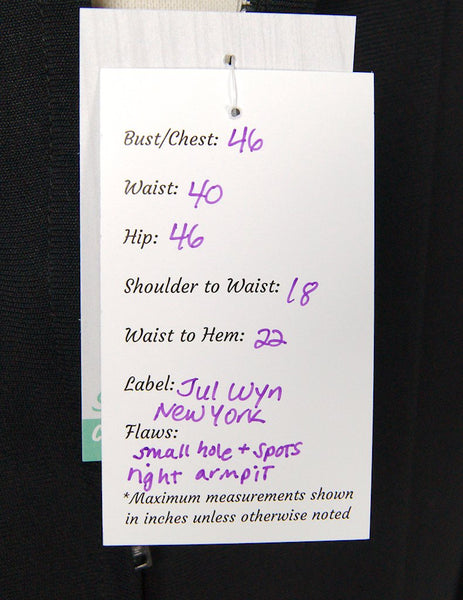 Bust/Chest: 46
Waist: 40
Hip: 46
Shoulder to Waist: 18
Waist to Hem: 22
Label: Jul Wyn
New York
Flaws:
small hole + spots
right armpit
*Maximum measurements shown
in inches unless otherwise noted